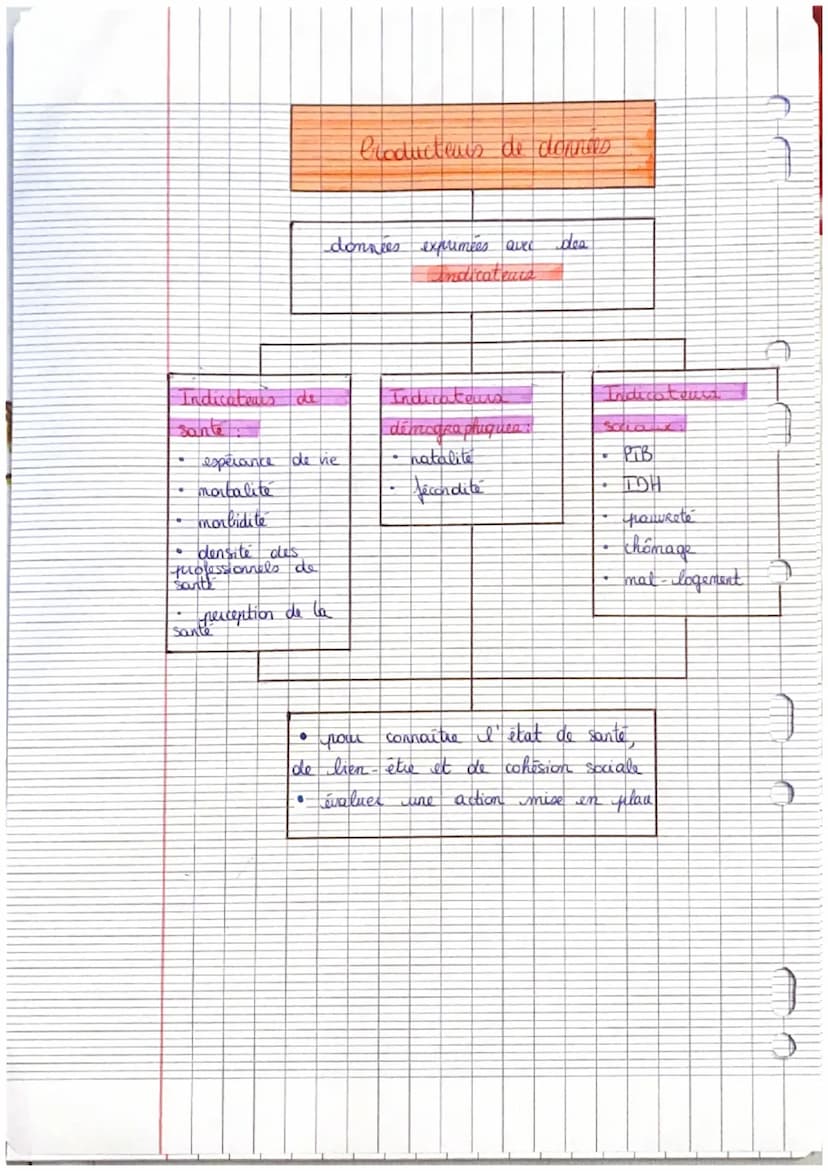 Producteurs de données
données exprimées avec des
indicateurs
Indicateurs de
santé :
• espérance de vie
• mortalité
• morbidité
• densité des
professionnels de
santé
• perception de la
santé
Indicateurs
démographiques :
• natalité
• fécondité
Indicateurs
sociaux :
• PIB
• IDH
• pauvreté
• chômage
• mal-logement
• pour connaître l'état de santé,
de bien-être et de cohésion sociale
• évaluer une action mise en place